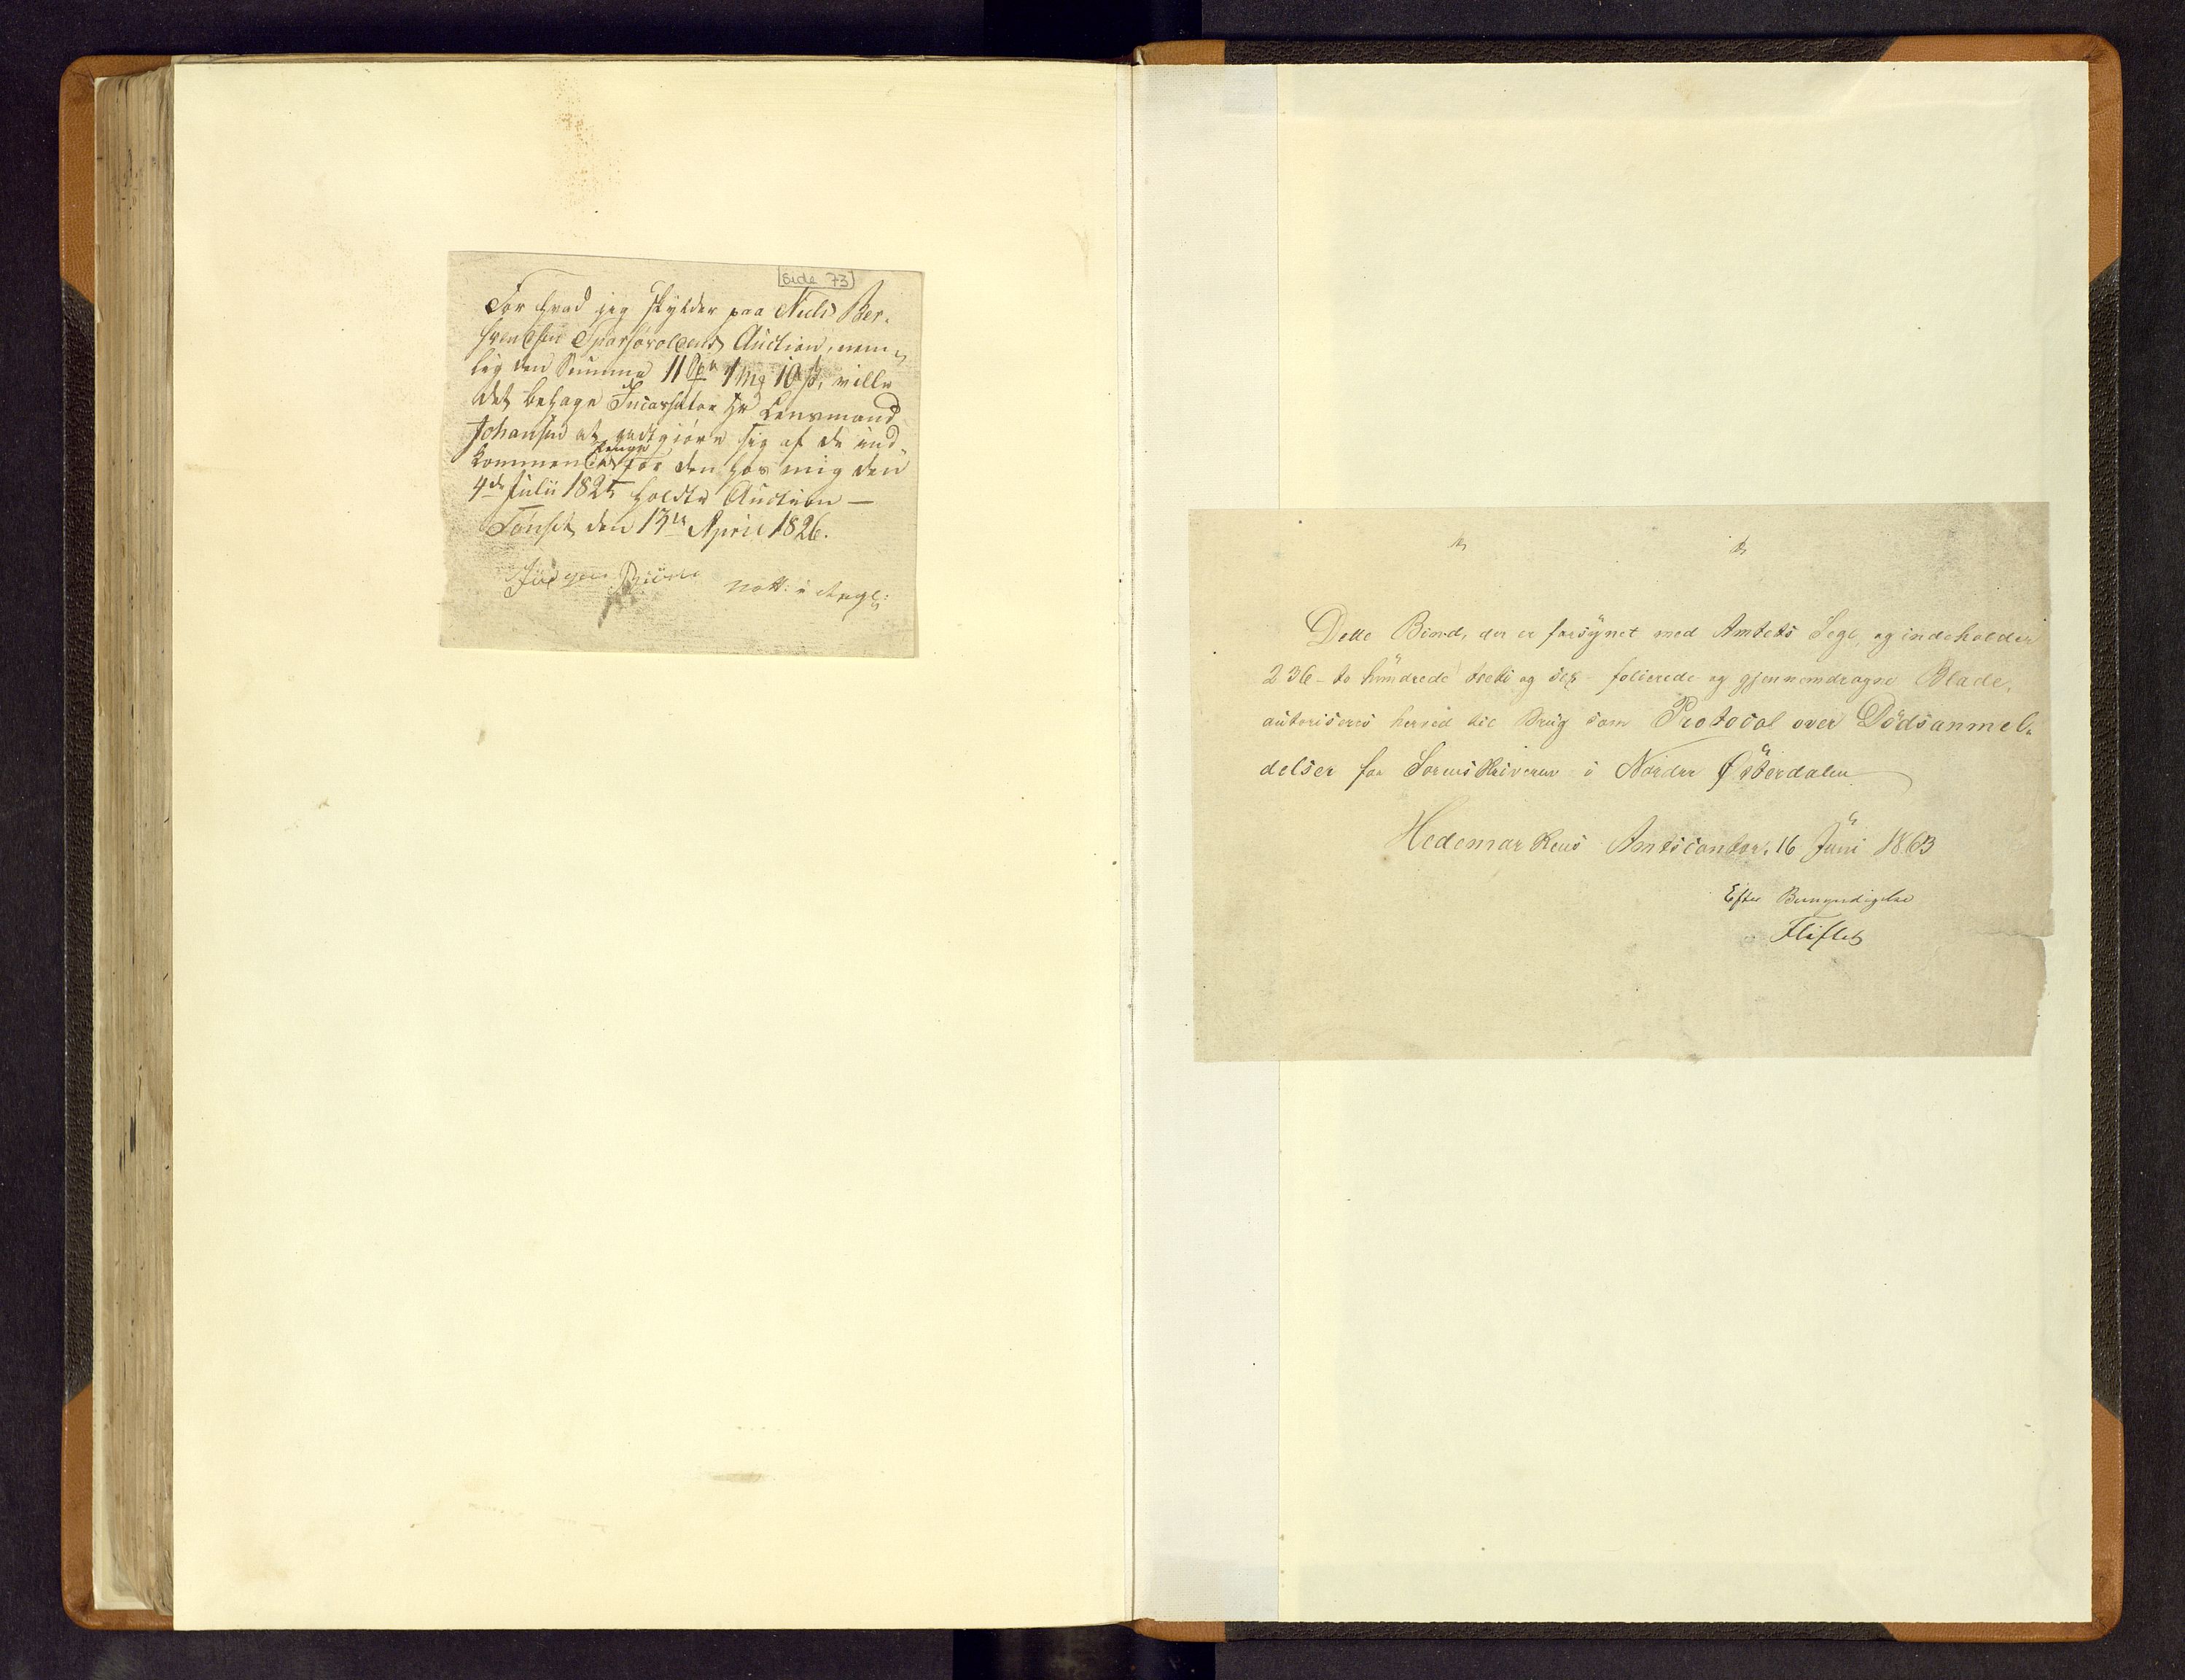 Side 73
For hvad jeg skylder paa Niels Ber-
hvendsen Auction, nem-
lig den Summa 11 Spd 1 mg 10 ß, ville
det behage Incassator Hr Lensmand
Johansen at godtgiøre sig af de ind-
kommende Penge for den hos mig den
4de Julii 1825 holdte Auction —
Tønset den 13de April 1826.
Dette Bind, der er forsynet med Amtets Segl, og indeholder
236 – to hundrede treti og sex – folierede og gjennemdragne Blade,
autoriseres herved til Brug som Protocol over Dødsanmel-
delser for Sorenskriveren i Nordre Østerdalen.
Hedemarkens Amtscontor, 16 Juni 1863
Efter Bemyndigelse
Fliflet